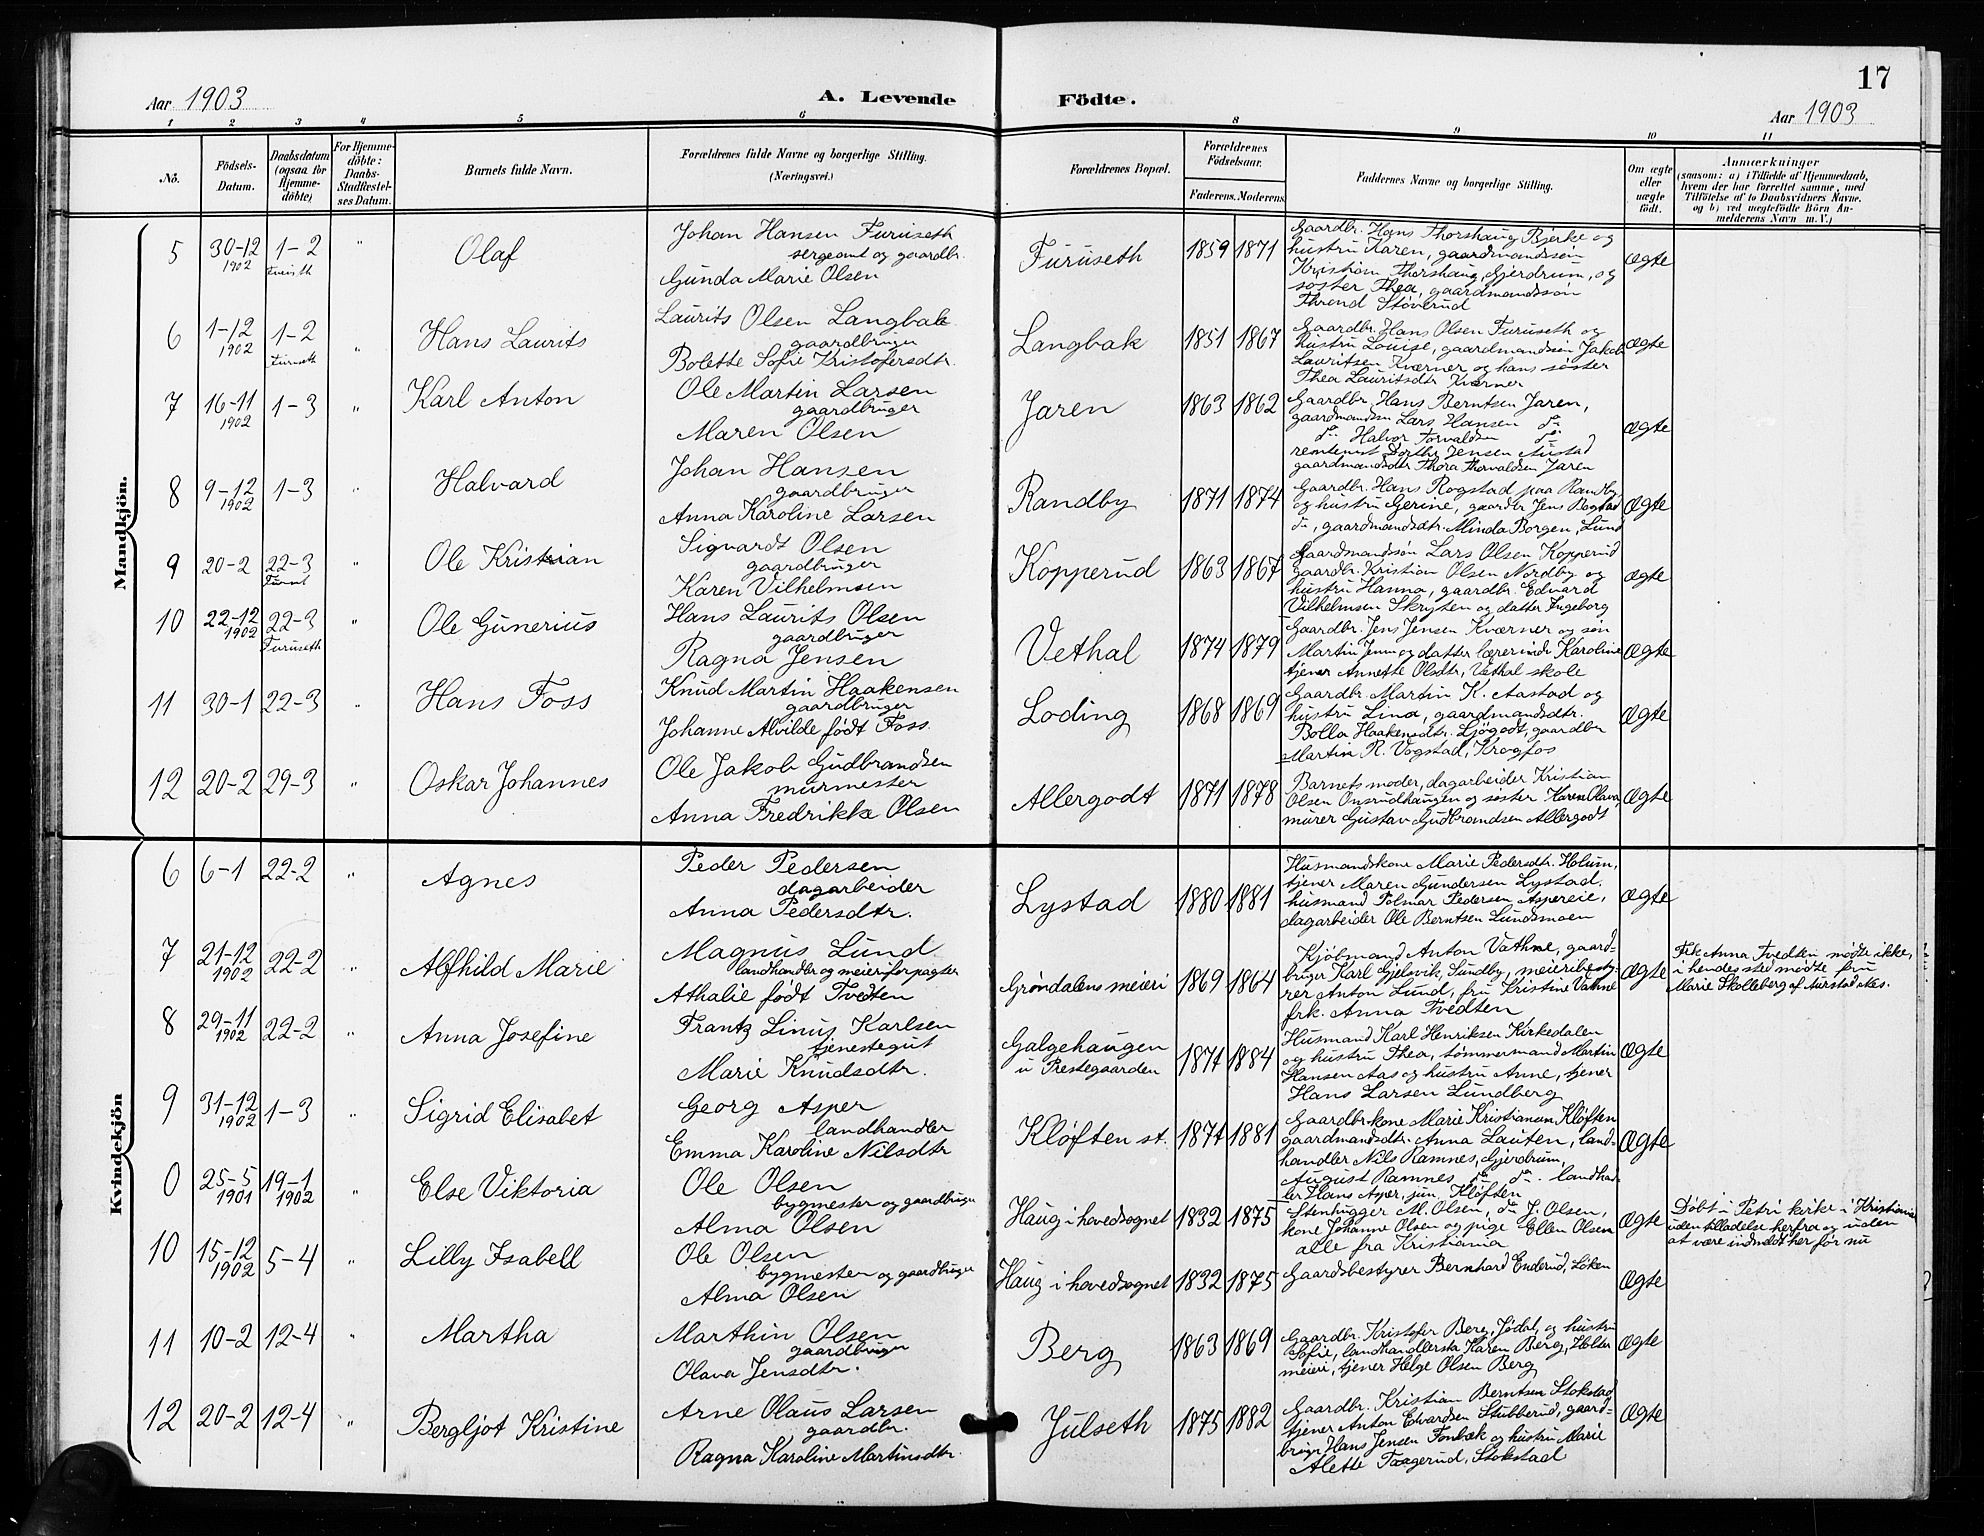 17
Aar 1903 A. Levende Födte. Aar 1903
1 2 3 4 5 6 8 9 10 11
No. Födsels-Datum. Daabsdatum (ogsaa for Hjemme-döbte) For Hjemme-döbte: Daabs-Stadfæstel-ses Datum. Barnets fulde Navn. Forældrenes fulde Navne og borgerlige Stilling. (Næringsvei.) Forældrenes Bopæl. Forældrenes Födselsaar. Faderens. Moderens. Faddernes Navne og borgerlige Stilling. Om ægte eller uægte födt. Anmærkninger (saasom: a) i Tilfælde af Hjemmedaab, hvem der har forrettet samme, med Tilföielse af to Daabsvidners Navne. og b) ved uægtefödte Börn An-melderens Navn m. V.)
Mandkjön.
5 30-12 1902 1-2 " Olaf
Johan Hansen Furuseth
sergeant og gaardbr.
Gunda Marie Olsen
Furuseth 1859 1871
Gaardbr. Hans Thorshaug Bjerke og
hustru Karen, gaardmandssøn
Kristian Thorshaug, Gjerdrum, og
søster Thea, gaardmandssøn
Thrond Støverud
Ægte
6 1-12 1902 1-2 Furuseth " Hans Laurits
Laurits Olsen Langbak
gaardbruger
Bolette Sofie Kristofersdtr.
Langbak 1851 1867
Gaardbr. Hans Olsen Furuseth og
hustru Louise, gaardmandssøn Jakob
Lauritsen Kværner og hans søster
Thea Lauritsdtr Kværner
Ægte
7 16-11 1902 1-3 " Karl Anton
Ole Martin Larsen
gaardbruger
Maren Olsen
Jaren 1863 1862
Gaardbr. Hans Berntsen Jaren,
gaardmandssøn Lars Hansen do
do Halvor Torvaldsen do
rentenist Dorthe Jensen Austad
gaardmandsdtr Thora Thorvaldsen Jaren
Ægte
8 9-12 1902 1-3 " Halvard
Johan Hansen
gaardbruger
Anna Karoline Larsen
Randby 1871 1874
Gaardbr. Hans Rogstad paa Randby
og hustru Gerine, gaardbr Jens Bogstad
do, gaardmandsdtr. Minda Borgen, Lund
Ægte
9 20-2 22-3 " Ole Kristian
Sigvardt Olsen
gaardbruger
Karen Vilhelmsen
Kopperud 1863 1867
Gaardmandssøn Lars Olsen Kopperud
gaardbr. Kristian Olsen Nordby og
hustru Hanna, gaardbr. Edvard
Vilhelmsen Skrysten og datter Ingeborg
Ægte
10 22-12 1902 22-3 Furuseth " Ole Gunerius
Hans Laurits Olsen
gaardbruger
Ragna Jensen
Vethal 1874 1879
Gaardbr. Jens Jensen Kværner og søn
Martin Jensen og datter lærerinde Karoline
tjener Annette Olsdtr, Vethal skole
Ægte
11 30-1 22-3 " Hans Foss
Knud Martin Haakensen
gaardbruger
Johanne Alvilde født Foss.
Loding 1868 1869
Gaardbr. Martin K. Aastad og
hustru Lina, gaardmandsdtr.
Bolla Haakensdtr. Ljøgodt, gaardbr
Martin R. Vogstad, Krogfos
Ægte
12 20-2 29-3 " Oskar Johannes
Ole Jakob Gudbrandsen
murmester
Anna Fredrikke Olsen
Allergodt 1871 1878
Barnets moder, dagarbeider Kristian
Olsen Onsrudhaugen og søster Karen Olava,
murer Gustav Gudbrandsen Allergodt
Ægte
Kvindekjön
6 6-1 22-2 " Agnes
Peder Pedersen
dagarbeider
Anna Pedersdtr.
Lystad 1880 1881
Husmandskone Marie Pedersdtr. Holum,
tjener Maren Gundersen Lystad.
husmand Polmar Pedersen Aspereie,
dagarbeider Ole Berntsen Lundsmoen
Ægte
7 21-12 1902 22-2 " Alfhild Marie
Magnus Lund
landhandler og meieriforpagter
Athalie født Tvedten
Grøndalens meieri 1869 1864
Kjøbmand Anton Vathne, gaard-
bruger Karl Gjelsvik, Sundby, meieribesty-
rer Anton Lund, fru Kristine Vathne
frk. Anna Tvedten
Ægte
Frk Anna Tvedten mødte ikke,
i hendes sted mødte fru
Marie Skolleberg af Aurstad aks.
8 29-11 1902 22-2 " Anna Josefine
Frantz Linus Karlsen
tjenestegut
Marie Knudsdtr.
Galgehaugen
u Prestegaarden
1874 1884
Husmand Karl Henriksen Kirkedalen
og hustru Thea, tømmermand Martin
Hansen Aas og hustru Anne, tjener
Hans Larsen Lundberg
Ægte
9 31-12 1902 1-3 " Sigrid Elisabet
Georg Asper
landhandler
Emma Karoline Nilsdtr
Kløften st. 1874 1881
Gaardbr.kone Marie Kristiansen Kløften
gaardmandsdtr. Anna Lauten, land-
handler Nils Ramnes, Gjerdrum,
August Ramnes do do. landhand
ler Hans Asper, jun, Kløften
Ægte
0 25-5 1901 19-1 1902 " Else Viktoria
Ole Olsen
bygmester og gaardbruger
Alma Olsen
Haug i hovedsognet 1832 1875
Stenhugger M. Olsen, do J. Olsen,
kone Johanne Olsen og pige Ellen Olsen
alle fra Kristiania
Ægte
Døbt i Petri kirke i Kristiania
uden tilladelse herfra og uden
at være indmeldt her før nu
10 15-12 1902 5-4 " Lilly Isabell
Ole Olsen
bygmester og gaardbruger
Alma Olsen
Haug i hovedsognet 1832 1875
Gaardsbestyrer Bernhard Enderud, Løken
Ægte
11 10-2 12-4 " Martha
Marthin Olsen
gaardbruger
Olava Jensdtr.
Berg 1863 1869
Gaardbr. Kristofer Berg, Jødal, og hustru
Sofie, landhandlerske Karen Berg, Holter
meieri, tjener Helge Olsen Berg
Ægte
12 20-2 12-4 " Bergljot Kristine
Arne Olaus Larsen
gaardbr.
Ragna Karoline Martinsdtr.
Julseth 1875 1882
Gaardbr. Kristian Berntsen Stokstad
tjener Anton Edvardsen Stubberud, gaard-
bruger Hans Jensen Fonbæk og hustru Marie
Alette Taagerud, Stokstad
Ægte